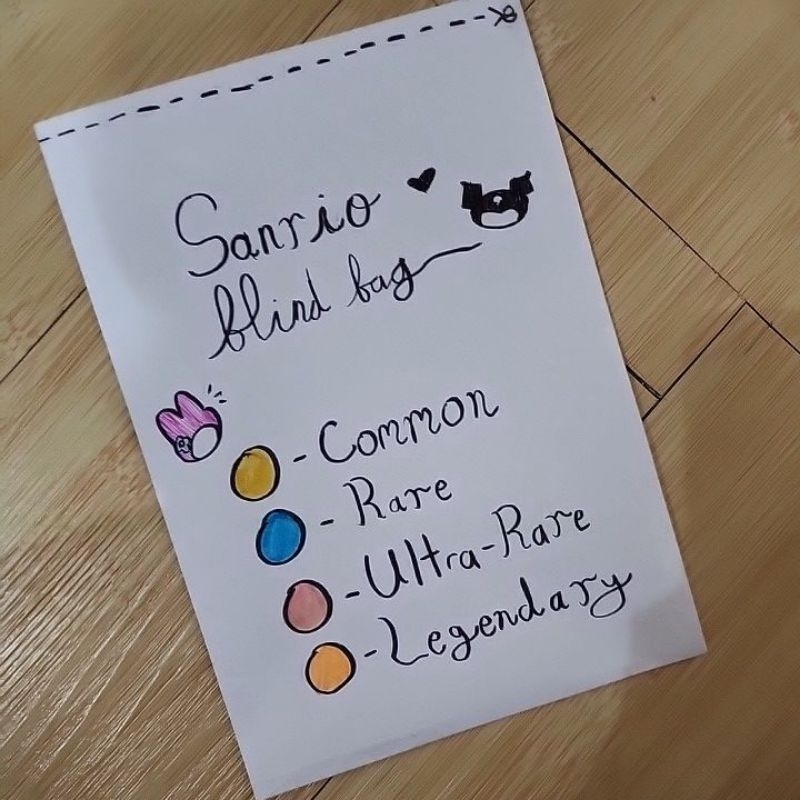 Sanrio
blind bag
- Common
- Rare
- Ultra-Rare
- Legendary